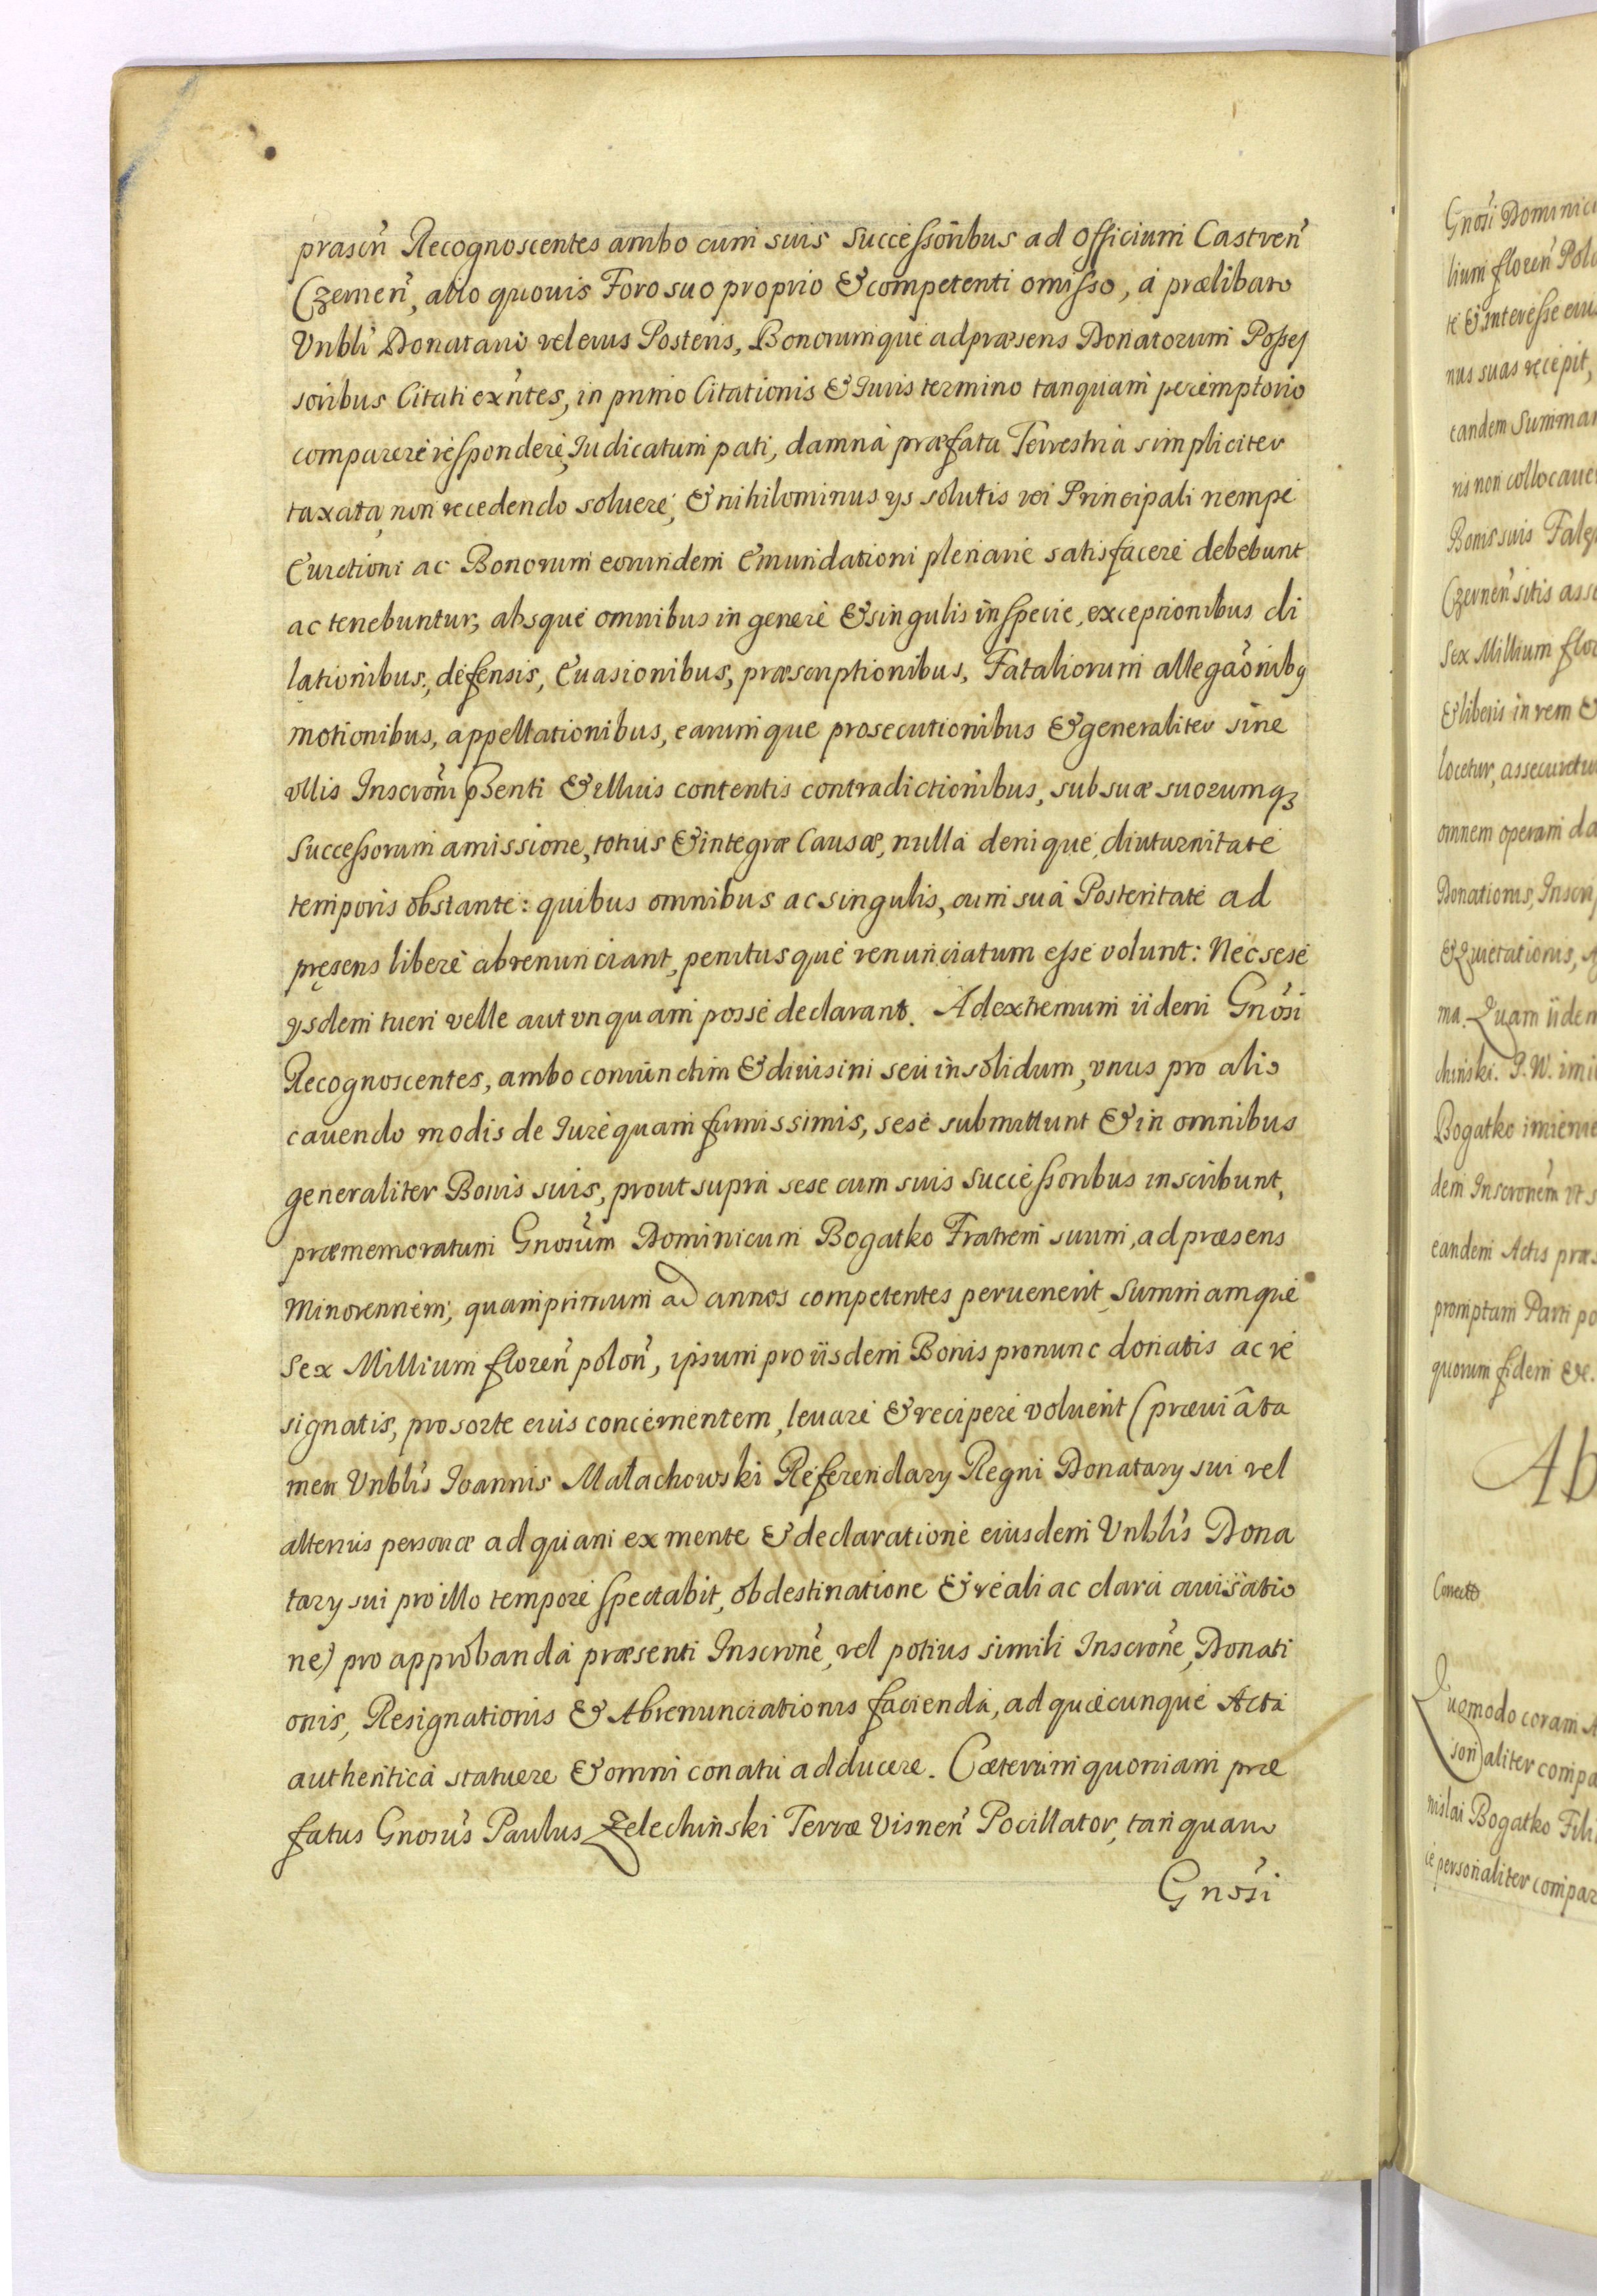 præsēn Recognoscentes ambo cum suis Successoribus ad Officium Castren̄
Czernen̄, alio quouis Foro suo proprio & competenti omisso, à prælibato
Vnbli Donatario vel eius Posteris, Bonorumque ad præsens Donatorum Posses
soribus Citati exn̄tes, in primo Citationis & Iuris termino tanquam peremptorio
comparere respondere, Iudicatum pati, damna præfata Terrestria simpliciter
taxata non recedendo soluere, & nihilominus ijs solutis rei Principali nempe
Euictioni ac Bonorum eorundem Emundationi plenarie satisfacere debebunt
ac tenebuntur, absque omnibus in genere & singulis in specie, exceptionibus di
lationibus, defensis, Euasionibus, præscriptionibus, Fataliorum allegaōnibq
motionibus, appellationibus, earumque prosecutionibus & generaliter sine
vllis Inscrōni pñsenti & illius contentis contradictionibus, sub suæ suorumqꝫ
Successorum amissione, totius & integræ Causæ, nulla denique, diuturnitate
temporis obstante: quibus omnibus ac singulis, cum sua Posteritate ad
pręsens libere abrenunciant, penitusque renunciatum esse volunt: Nec sese
ijsdem tueri velle aut vnquam posse declarant. Ad extremum iidem Gnōsi
Recognoscentes, ambo coniunctim & diuisim seu in solidum, vnus pro alio
cauendo modis de Iure quam firmissimis, sese submittunt & in omnibus
generaliter Bonis suis, prout supra sese cum suis Successoribus inscribunt,
præmemoratum Gnosūm Dominicum Bogatko Fratrem suum, ad præsens
Minorennem, quamprimum ad annos competentes peruenerit, Summamque
Sex Millium floren̄ polon̄, ipsum pro iisdem Bonis pronunc donatis ac re
signatis, pro sorte eius concernentem, leuare & recipere voluerit (præuiâ ta
men Vnblīs Ioannis Małachowski Referendarÿ Regni Donatarÿ sui vel
alterius personæ ad quam ex mente & declaratione eiusdem Vnblīs Dona
tarÿ sui pro illo tempore spectabit, obdestinatione & reali ac clara auisatio
ne) pro approbanda præsenti Inscronē, vel potius simili Inscronē, Donati
onis, Resignationis & Abrenunciationis facienda, ad quæcunque Acta
authentica statuere & omni conatu adducere. Cæterum quoniam præ
fatus Gnosūs Paulus Zelechiński Terræ Visnen̄ Pocillator, tanquam
Gnōsi
Gnōsi Dominici
lium floren̄ Polo
te & interesse eius
nus suas recepit,
eandem Summam
ris non collocauer
Bonis suis Falę
Czernen̄ sitis asse
Sex Millium flor
& liberis in rem &
locetur, assecuretur
omnem operam da
Donationis, Inscrip
& Quietationis, A
ma. Quam iidem
chiński. P. W. imie
Bogatko imieniem
dem Inscronēm vt s
eandem Actis præs
promptam Parti po
quorum fidem &c.
Ab
Correcto
Quomodo coram A
sonaliter compa
nislai Bogatko Fili
ie personaliter compar